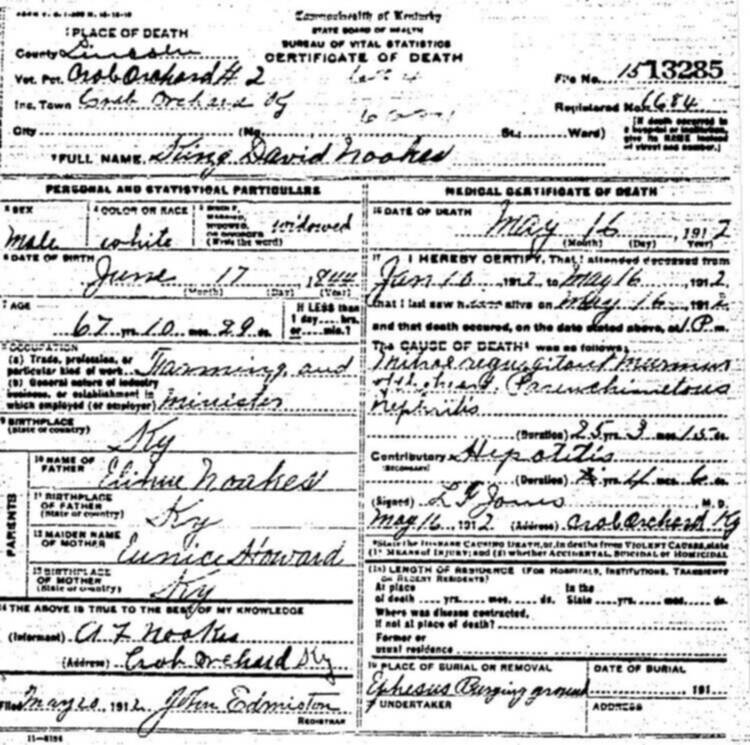 Commonwealth of Kentucky
STATE BOARD OF HEALTH
BUREAU OF VITAL STATISTICS
CERTIFICATE OF DEATH
1 PLACE OF DEATH
County Lincoln
Vot. Pct. Crab Orchard # 2
Inc. Town Crab Orchard Ky
City (No. St.; Ward)
File No. 15 13285
Registered No. 6684
[If death occurred in a hospital or institution, give its NAME instead of street and number.]
2 FULL NAME King David Noakes
PERSONAL AND STATISTICAL PARTICULARS
3 SEX
Male
4 COLOR OR RACE
white
5 SINGLE, MARRIED, WIDOWED, OR DIVORCED (Write the word) widowed
6 DATE OF BIRTH
June 17 1844
(Month) (Day) (Year)
7 AGE
67 yrs. 10 mos. 29 ds.
If LESS than 1 day....hrs. or....min.?
8 OCCUPATION
(a) Trade, profession, or particular kind of work Farming and
(b) General nature of industry business, or establishment in which employed (or employer) Minister
9 BIRTHPLACE
(State or country) Ky
PARENTS
10 NAME OF FATHER Elihue Noakes
11 BIRTHPLACE OF FATHER (State or country) Ky
12 MAIDEN NAME OF MOTHER Eunice Howard
13 BIRTHPLACE OF MOTHER (State or country) Ky
14 THE ABOVE IS TRUE TO THE BEST OF MY KNOWLEDGE
(Informant) A F Noakes
(Address) Crab Orchard Ky
15
Filed May 20 1912 John Edmiston
REGISTRAR
11-6184
MEDICAL CERTIFICATE OF DEATH
16 DATE OF DEATH
May 16 1912
(Month) (Day) (Year)
17 I HEREBY CERTIFY, That I attended deceased from
Jan 10 1912 to May 16 1912
that I last saw h alive on May 16 1912
and that death occured, on the date stated above, at 1 P m.
The CAUSE OF DEATH* was as follows:
Mitral regurgitant murmur
of heart Parenchimetous
Nephritis
(Duration) 25 yrs. 3 mos. 15 ds.
Contributory Hepotitis
(SECONDARY)
(Duration) yrs. 4 mos. 6 ds.
(Signed) L F Jones M. D.
May 16 1912 (Address) Crab Orchard Ky
*State the DISEASE CAUSING DEATH, or, in deaths from VIOLENT CAUSES, state (1) MEANS OF INJURY; and (2) whether ACCIDENTAL, SUICIDAL or HOMICIDAL
18 LENGTH OF RESIDENCE (FOR HOSPITALS, INSTITUTIONS, TRANSIENTS OR RECENT RESIDENTS)
At place of death ....yrs. ....mos. ....ds. In the State ....yrs. ....mos. ....ds.
Where was disease contracted,
if not at place of death?
Former or usual residence
19 PLACE OF BURIAL OR REMOVAL
Ephesus Burying ground
DATE OF BURIAL
191
UNDERTAKER
ADDRESS